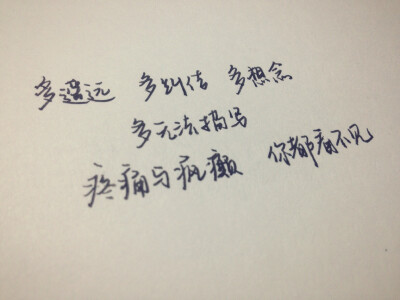 多遥远 多纠结 多想念
多无法描写
疼痛与疯癫 你都看不见